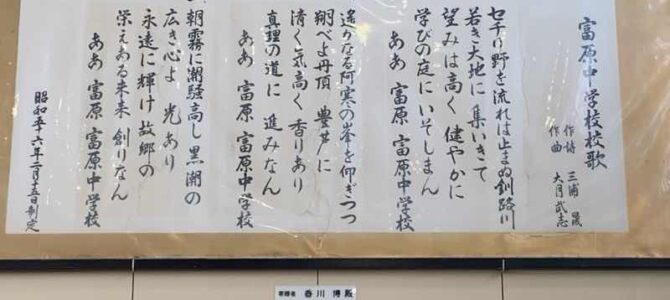 富原中学校校歌
作詩 三浦 晟
作曲 大月武志
セチリ野を流れは止まぬ釧路川
若き大地に 集いきて
望みは高く 健やかに
学びの庭に いそしまん
ああ 富原 富原中学校
遙かな石阿寒の峯を仰ぎつつ
翔べよ丹頂 豊かに
清く気高く 香りあり
真理の道に 進みなん
ああ 富原 富原中学校
朝霧に潮騒高し 黒潮の
広き心よ 光あり
永遠に輝け 故郷の
栄えある未来 創りなん
ああ 富原 富原中学校
昭和五十六年二月十五日制定
寄贈者 香川 博殿